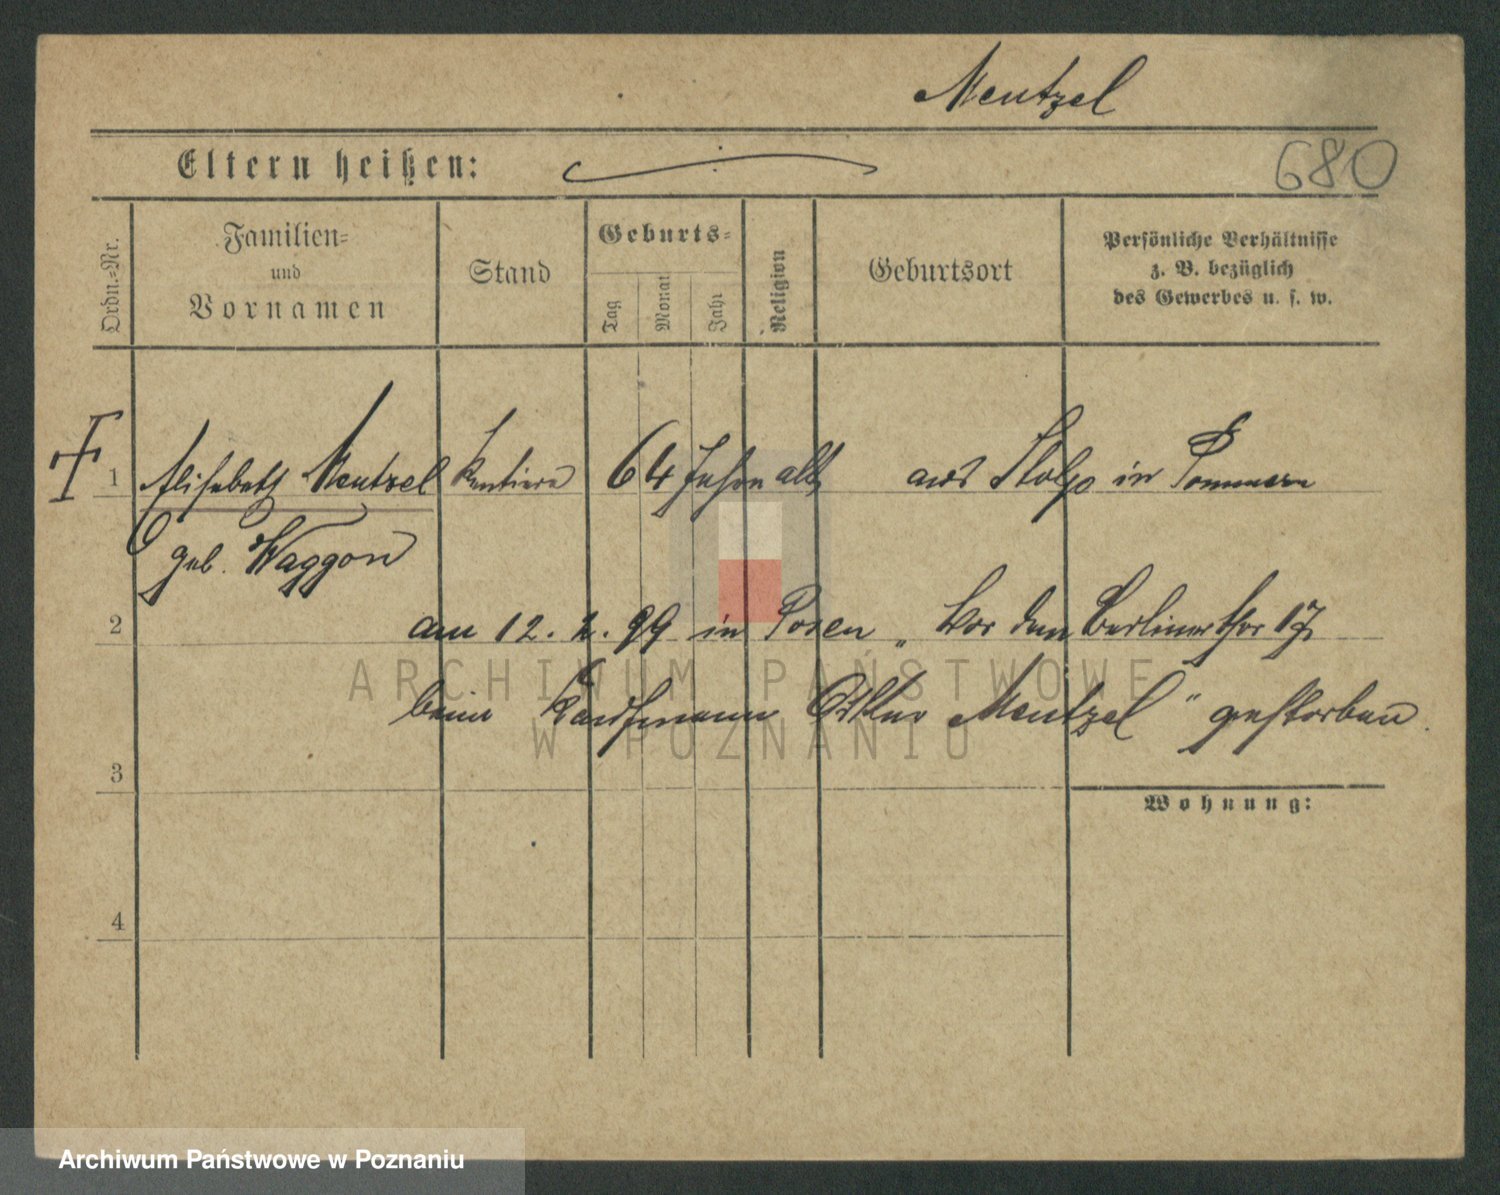 Mentzel
Eltern heißen:
680
Ordn.-Nr.
Familien-
und
Vornamen
Stand
Geburts-
Tag
Monat
Jahr
Religion
Geburtsort
Persönliche Verhältnisse
z. B. bezüglich
des Gewerbes u. s. w.
1 Elisabeth Mentzel Rentiere 64 Jahre alt, aus Stolp in Pommern
geb. Waggon
2 am 12. 2. 99 in Posen „ Vor dem Berliner Thor 17
beim Kaufmann Mentzel " gestorben.
3
Wohnung:
4
ARCHIWUM PAŃSTWOWE
W POZNANIU
Archiwum Państwowe w Poznaniu